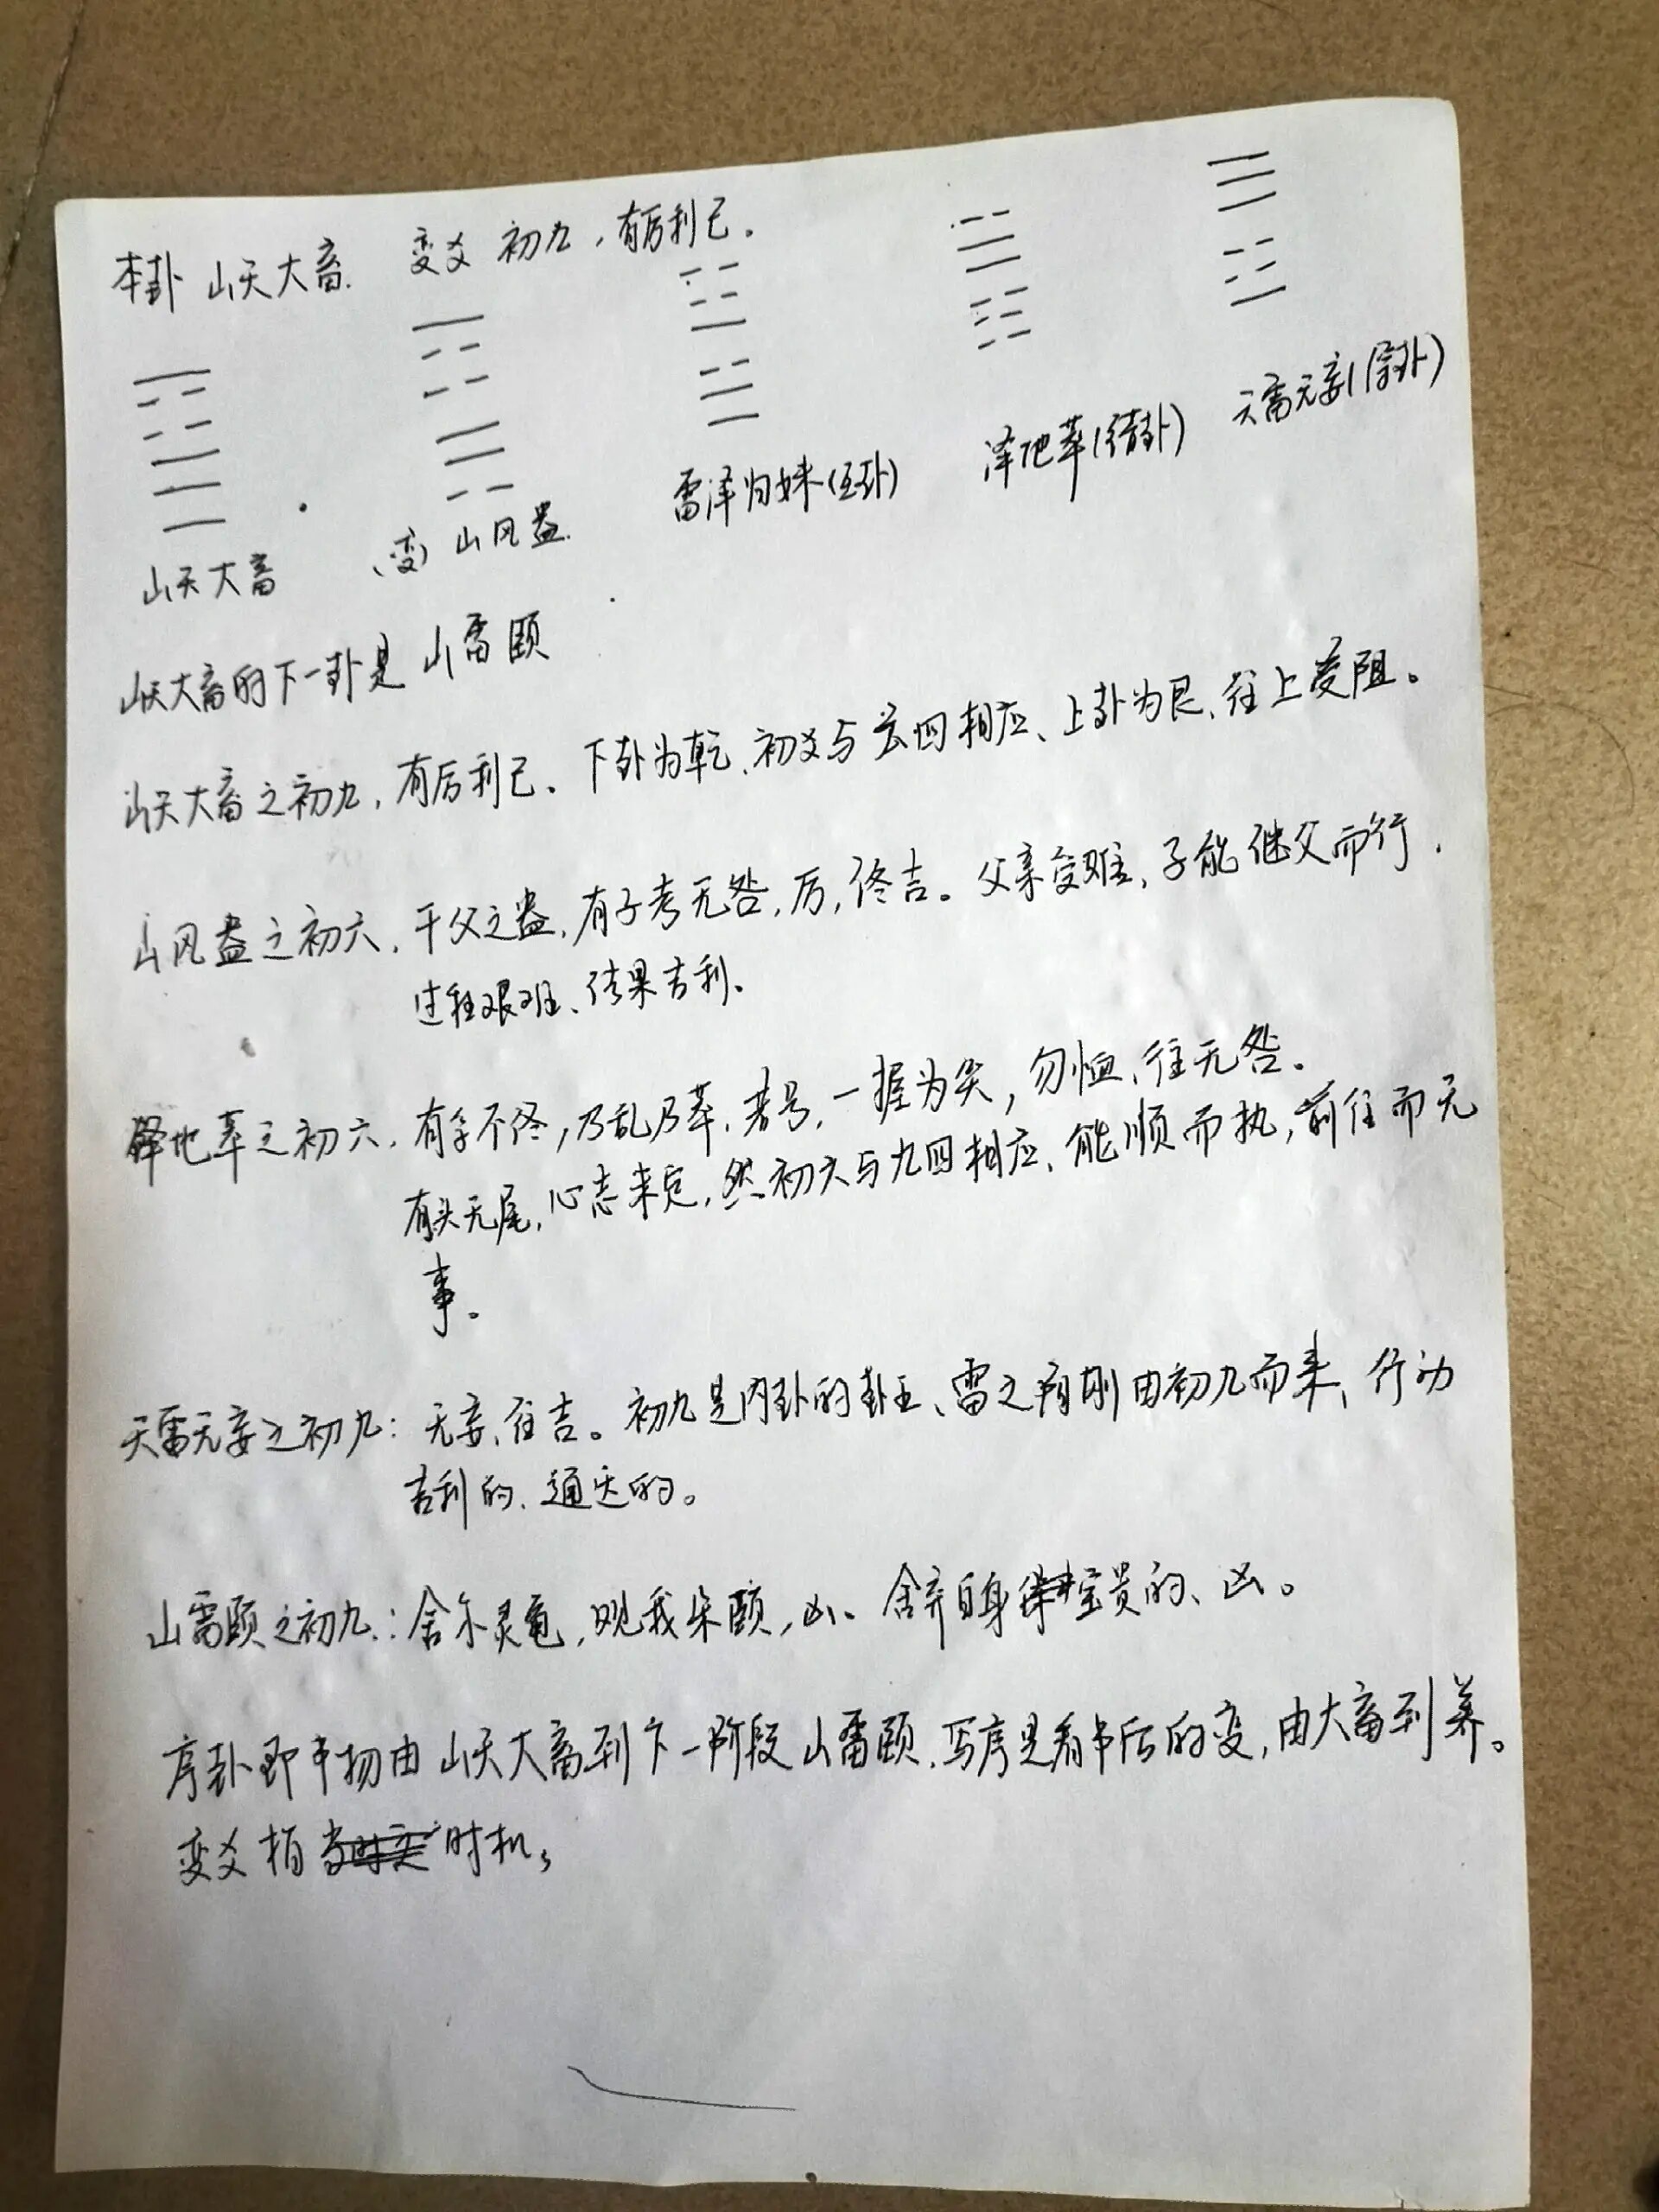 本卦 山天大畜. 变爻 初九，有厉利已。
山天大畜
(变) 山风蛊.
雷泽归妹(互卦)
泽地萃(错卦)
天雷无妄(综卦)
山天大畜的下一卦是 山雷颐
山天大畜之初九，有厉利已。下卦为乾、初爻与六四相应、上卦为艮、往上受阻。
山风蛊之初六，干父之蛊，有子考无咎，厉，终吉。父亲受难，子能继父而行.
过程艰难、结果吉利。
泽地萃之初六，有孚不终，乃乱乃萃，若号，一握为笑，勿恤、往无咎。
有头无尾，心志未定，然初六与九四相应、能顺而执，前往而无
事。
天雷无妄之初九：无妄、往吉。初九是内卦的卦主、雷之刚由初九而来、行动
吉利的、通达的。
山雷颐之初九：舍尔灵龟，观我朵颐，凶、舍弃自身宝贵的、凶。
序卦即事物由山天大畜到下一阶段山雷颐、写序是看事后的变，由大畜到养。
变爻指 时机。